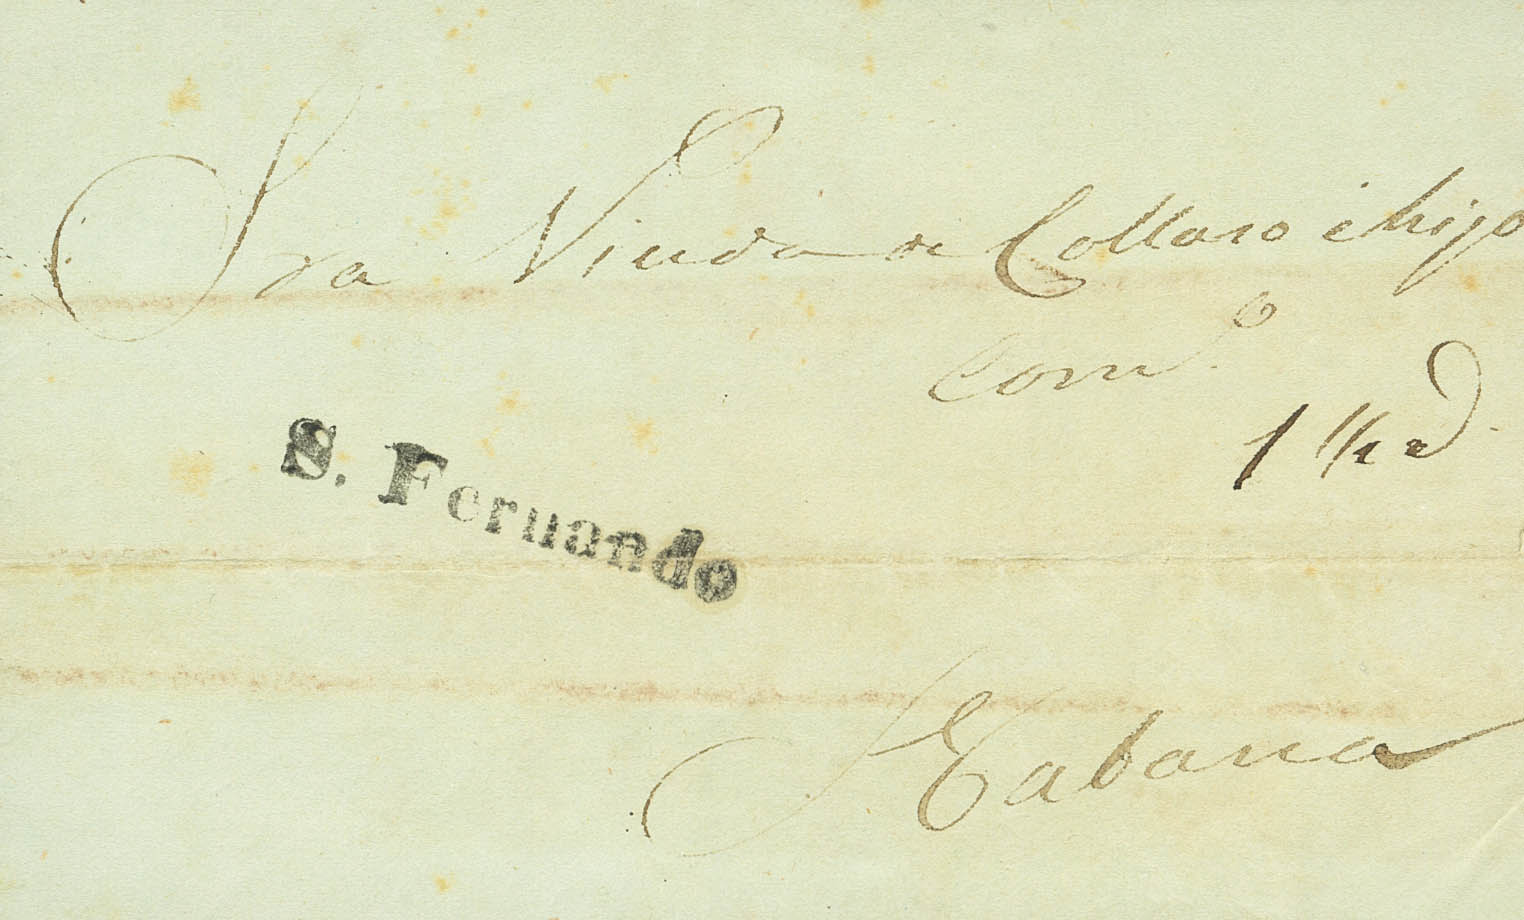 Sra Viuda de Collaso é hijo
Com.o
S. Fernando
Habana